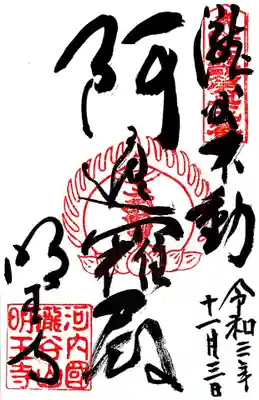 令和三年
十一月三日
瀧谷不動
阿遮羅殿
明王寺
河内國
瀧谷山
明王寺